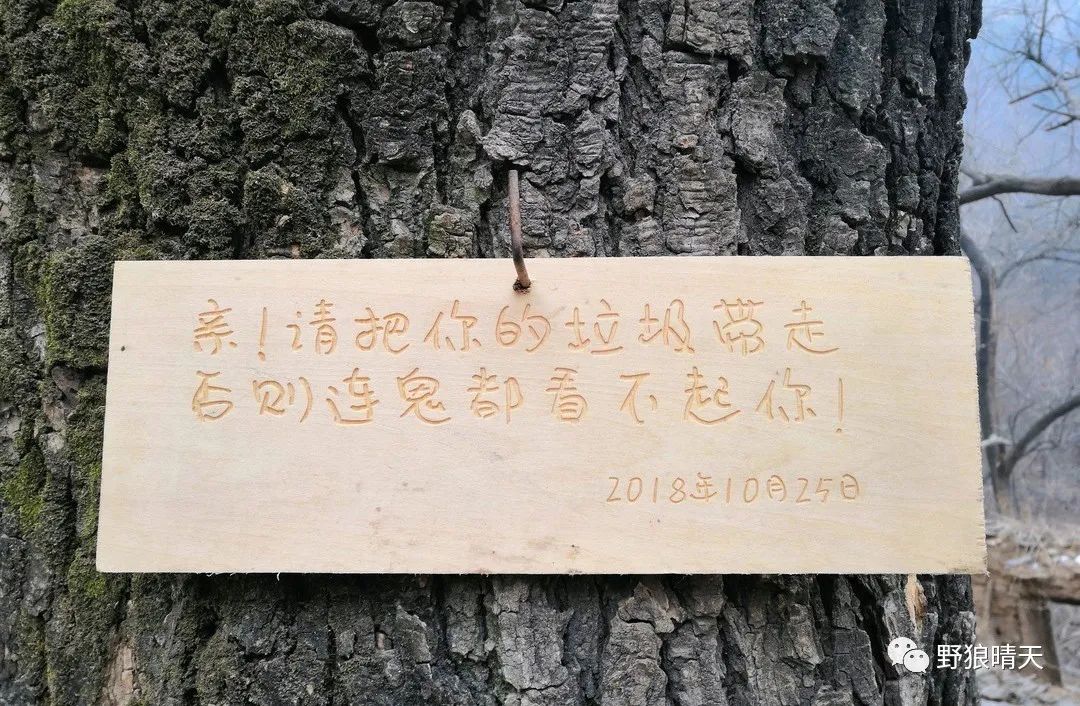 亲!请把你的垃圾带走
否则连鬼都看不起你!
2018年10月25日
野狼晴天